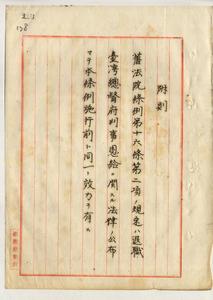 附則
舊法院條例第十六條第二項ノ規定ハ退職
臺灣總督府判事恩給ニ關スル法律ノ公布
マテ本條例施行前ト同一ノ效力ヲ有ス